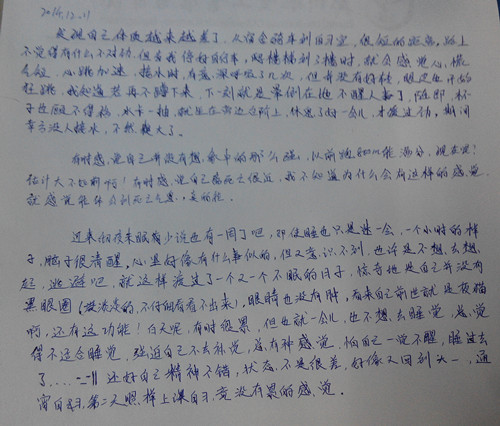 2014.12.11
发现自己体质越来越差了，从宿舍骑车到自习室，很短的距离，路上
不觉得有什么不对劲，但当我停好自行车，爬楼梯到了楼时，就会感觉心慌
气短，心跳加速，接水时，有意深呼吸了几次，但并没有好转，眼定也
狂跳，我知道若再不蹲下来，下一刻就是晕倒在地不醒人事了，随即 杯
子也顾不得接，水卡一拍，就坐在旁边台阶上，休息了好一会儿，才缓过劲，期间
幸亏没人接水，不然糗大了。
有时感觉自己并没有想象中的那么强，以前跑800m能满分，现在呢？
估计大不如前啊！有时感觉自己离死亡很近，我不知道为什么会有这样的感觉
就感觉能体会到死亡气息，是的呢。
近来彻夜未眠有少说也有一周了吧，即使睡也只是迷一会，一个小时的样
子，脑子很清醒，心里好像有什么事似的，但又意识不到，也许是不想去想
起，逃避吧，就这样渡过了一个又一个不眠的日子，惊奇地是自己并没有
黑眼圈（挺浅的，不仔细看看不出来），眼睛也没有肿，看来自己前世就是夜猫
啊，还有这功能！白天呢，有时很累，但也就一会儿，也不想去睡觉，总觉
得不适合睡觉，强迫自己不去补觉，总有种感觉，怕自己一觉不醒，睡过去
了....-_-|| 还好自己精神不错，状态不是很差，好像又回到大一，通
宵自习，第二天照样上课自习，竟没有累的感觉。